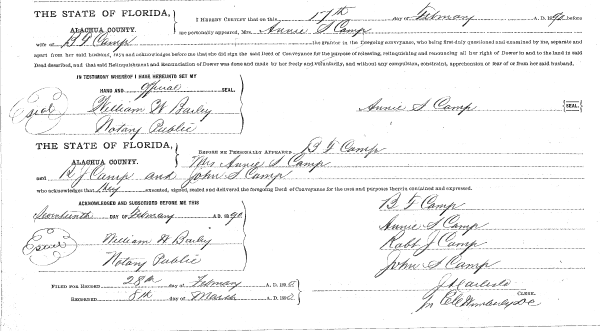 THE STATE OF FLORIDA,
ALACHUA COUNTY.
I HEREBY CERTIFY that on this 17th day of February A. D. 1890 before
me personally appeared, Mrs. Annie S Camp
wife of B F Camp the grantor in the foregoing conveyance, who being first duly questioned and examined by me, separate and
apart from her said husband, says and acknowledges before me that she did sign the said Deed of Conveyance for the purpose of releasing, relinquishing and renouncing all her right of Dower in and to the land in said
Deed described, and that said Relinquishment and Renunciation of Dower was done and made by her freely and voluntarily, and without any compulsion, constraint, apprehension or fear of or from her said husband.
IN TESTIMONY WHEREOF I HAVE HEREUNTO SET MY
HAND AND official SEAL.
William W Bailey
Notary Public
Annie S Camp
SEAL
THE STATE OF FLORIDA,
ALACHUA COUNTY.
BEFORE ME PERSONALLY APPEARED B F Camp
Mrs Annie S Camp
and R J Camp and John S Camp
who acknowledges that they executed, signed, sealed and delivered the foregoing Deed of Conveyance for the uses and purposes therein contained and expressed.
ACKNOWLEDGED AND SUBSCRIBED BEFORE ME THIS
Seventeenth DAY OF February A. D. 1890
William W Bailey
Notary Public
B F Camp
Annie S Camp
Robt J Camp
John S Camp
FILED FOR RECORD 28th day of February A. D. 1890
RECORDED 8th day of March A. D. 1890
CLERK.